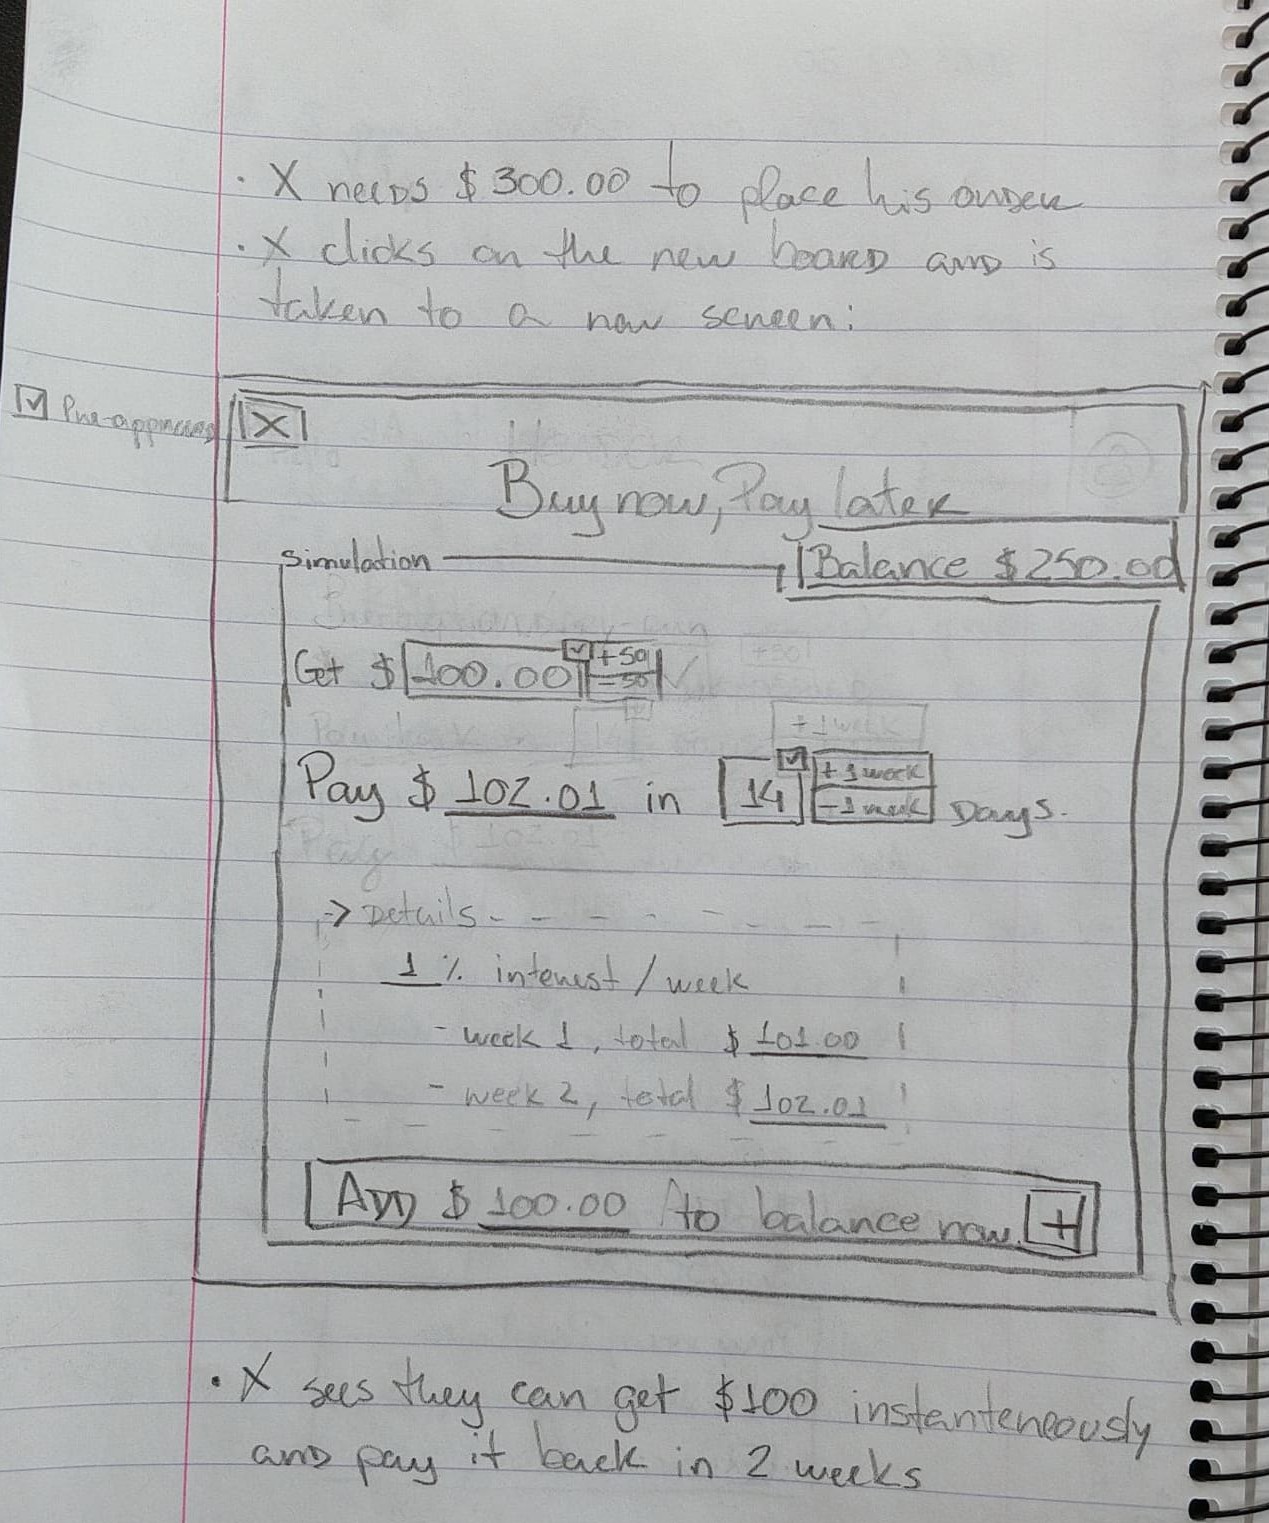 · X needs $300.00 to place his order
· X clicks on the new board and is
taken to a new screen:
Pre-approved
X
Buy now, Pay later
Balance $250.00
Simulation
Get $ 100.00 +50
-50
Pay $ 102.01 in 14 +1 week
-1 week Days.
-> Details
1 % interest / week
- week 1, total $ 101.00
- week 2, total $ 102.01
Add $ 100.00 to balance now. +
· X sees they can get $100 instanteneously
and pay it back in 2 weeks